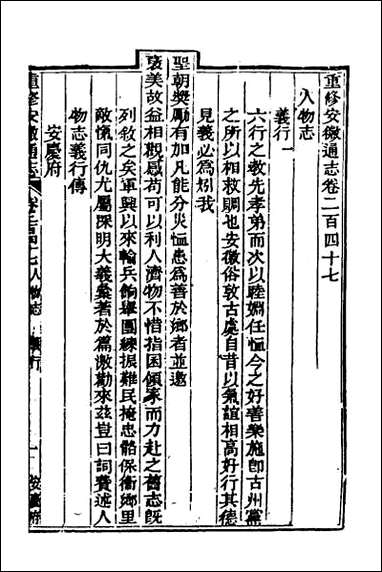 重修安徽通志卷二百四十七
人物志
義行一
六行之教先孝弟而次以睦婣任恤今之好善樂施卽古州黨
之所以相救賙也安徽俗敦古處自昔以氣誼相高好行其德
見義必爲矧我
聖朝獎勵有加凡能分災恤患爲善於鄉者並邀
褒美故益相觀感苟可以利人濟物不惜指囷傾家而力赴之舊志旣
列敘之矣軍興以來輸兵餉舉團練振難民掩忠骼保衞鄉里
敵愾同仇尤屬深明大義彙著於篇激勸來茲豈曰詞費述人
物志義行傳
安慶府
重修安徽通志
卷二百四十七人物志
義行一
一
安慶府